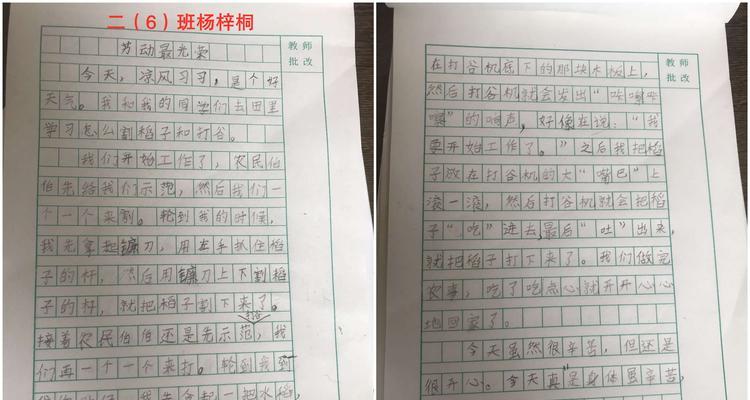 二（6）班杨梓桐
劳动最光荣
教师
批改
今天，凉风习习，是个好
天气。我和我的同学们去田里
学习怎么割稻子和打谷。
我们开始工作了，农民伯
伯先给我们示范，然后我们一
个一个来割。轮到我的时候，
我先拿起镰刀，用左手抓住稻
子的杆，然后用镰刀上下割稻
子的杆，就把稻子割下来了。
接着农民伯伯还是先示范，我
们再一个一个来打。轮到我
我先拿起一把水稻，
教师
批改
在打谷机底下的那块木板上，
然后打谷机就会发出“咔嚓咔
嚓”的响声，好像在说：“我
要开始工作了。”之后我把稻
子放在打谷机的大“嘴巴”上
滚一滚，然后打谷机就会把稻
子“吃”进去，最后“吐”出来，
就把稻子打下来了。我们做完
农事，吃了吃点心就开开心心
地回家了。
今天虽然很辛苦，但还是
很开心。今天真是身体虽辛苦，